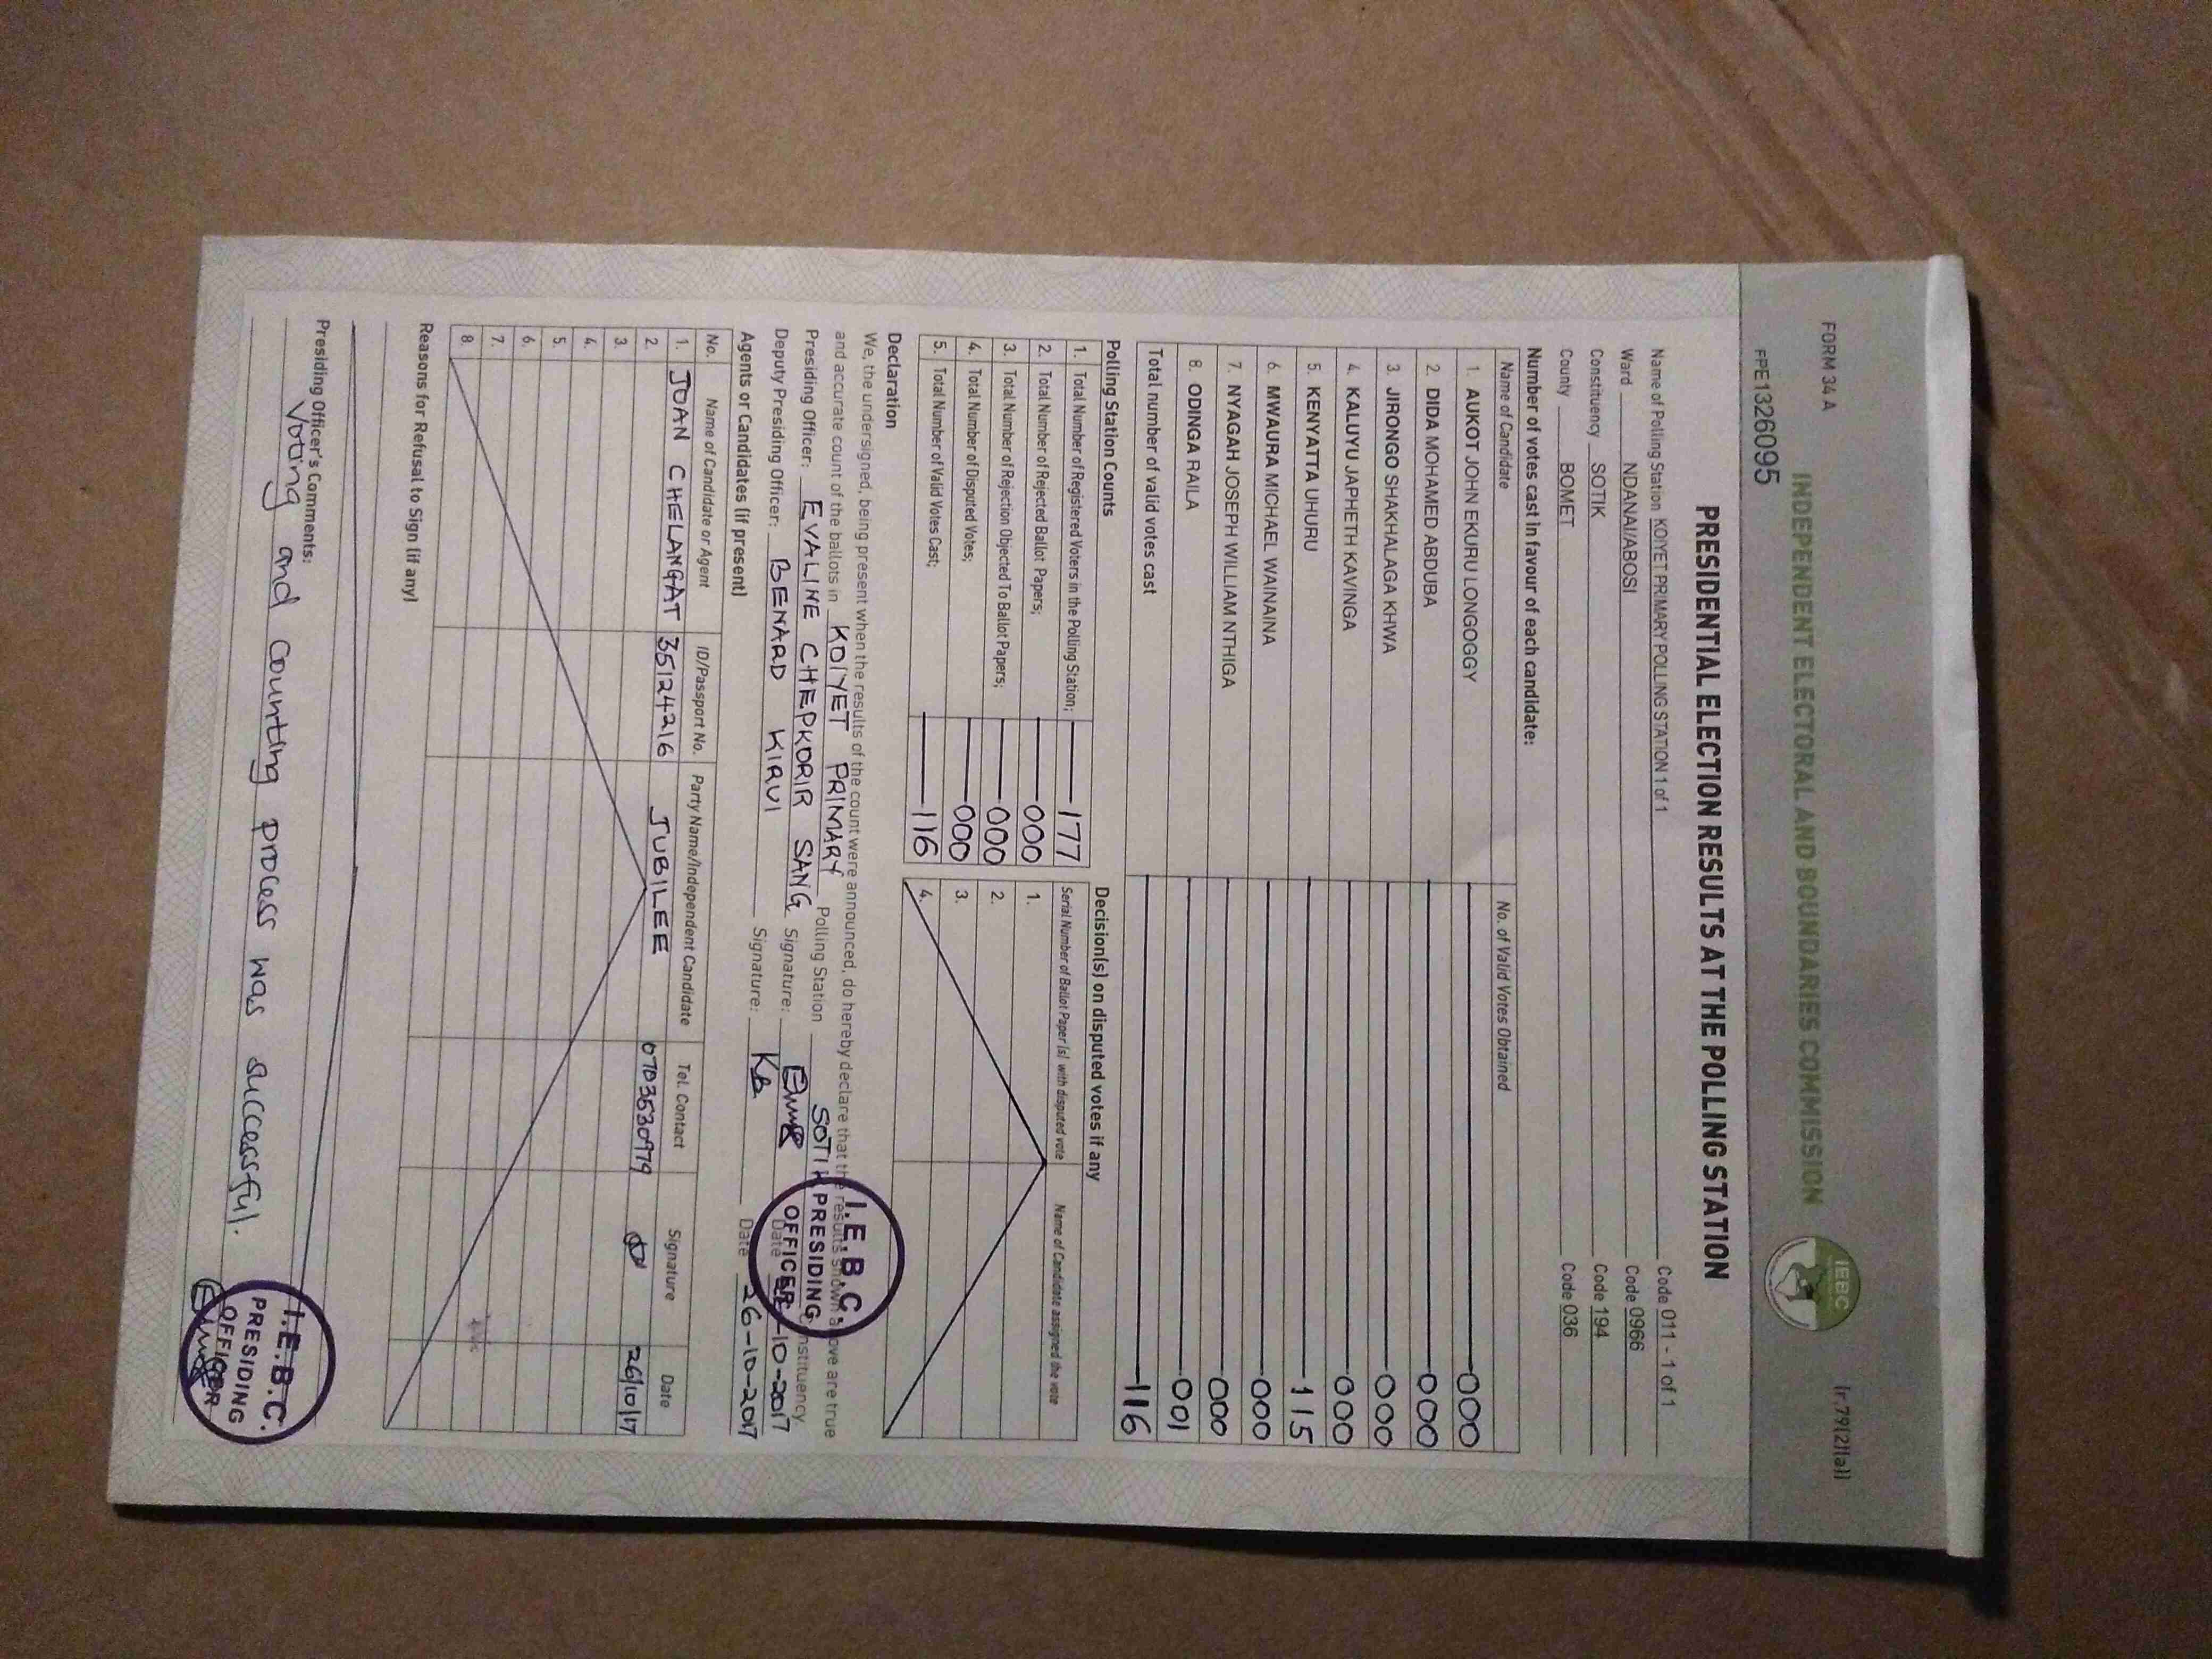 FORM 34 A
(r.79(2)(a))
INDEPENDENT ELECTORAL AND BOUNDARIES COMMISSION
IEBC
FPE1326095
PRESIDENTIAL ELECTION RESULTS AT THE POLLING STATION
Name of Polling Station KOIYET PRIMARY POLLING STATION 1 of 1 Code 011 - 1 of 1
Ward NDANAI/ABOSI Code 0966
Constituency SOTIK Code 194
County BOMET Code 036
Number of votes cast in favour of each candidate:
Name of Candidate No. of Valid Votes Obtained
1. AUKOT JOHN EKURU LONGOGGY 000
2. DIDA MOHAMED ABDUBA 000
3. JIRONGO SHAKHALAGA KHWA 000
4. KALUYU JAPHETH KAVINGA 000
5. KENYATTA UHURU 115
6. MWAURA MICHAEL WAINAINA 000
7. NYAGAH JOSEPH WILLIAM NTHIGA 000
8. ODINGA RAILA 001
Total number of valid votes cast 116
Polling Station Counts
1. Total Number of Registered Voters in the Polling Station; 177
2. Total Number of Rejected Ballot Papers; 000
3. Total Number of Rejection Objected To Ballot Papers; 000
4. Total Number of Disputed Votes; 000
5. Total Number of Valid Votes Cast; 116
Decision(s) on disputed votes if any
Serial Number of Ballot Paper (s) with disputed vote Name of Candidate assigned the vote
1.
2.
3.
4.
Declaration
We, the undersigned, being present when the results of the count were announced, do hereby declare that the results shown above are true
and accurate count of the ballots in KOIYET PRIMARY Polling Station SOTIK Constituency.
Presiding Officer: EVALINE CHEPKORIR SANG Signature: Date -10-2017
Deputy Presiding Officer: BENARD KIRUI Signature: KB Date 26-10-2017
I.E.B.C.
PRESIDING
OFFICER
Agents or Candidates (if present)
No. Name of Candidate or Agent ID/Passport No. Party Name/Independent Candidate Tel. Contact Signature Date
1. JOAN CHELANGAT 35124216 JUBILEE 0703530979 26/10/17
2.
3.
4.
5.
6.
7.
8.
Reasons for Refusal to Sign (if any)
Presiding Officer's Comments:
Voting and counting process was successful.
I.E.B.C.
PRESIDING
OFFICER